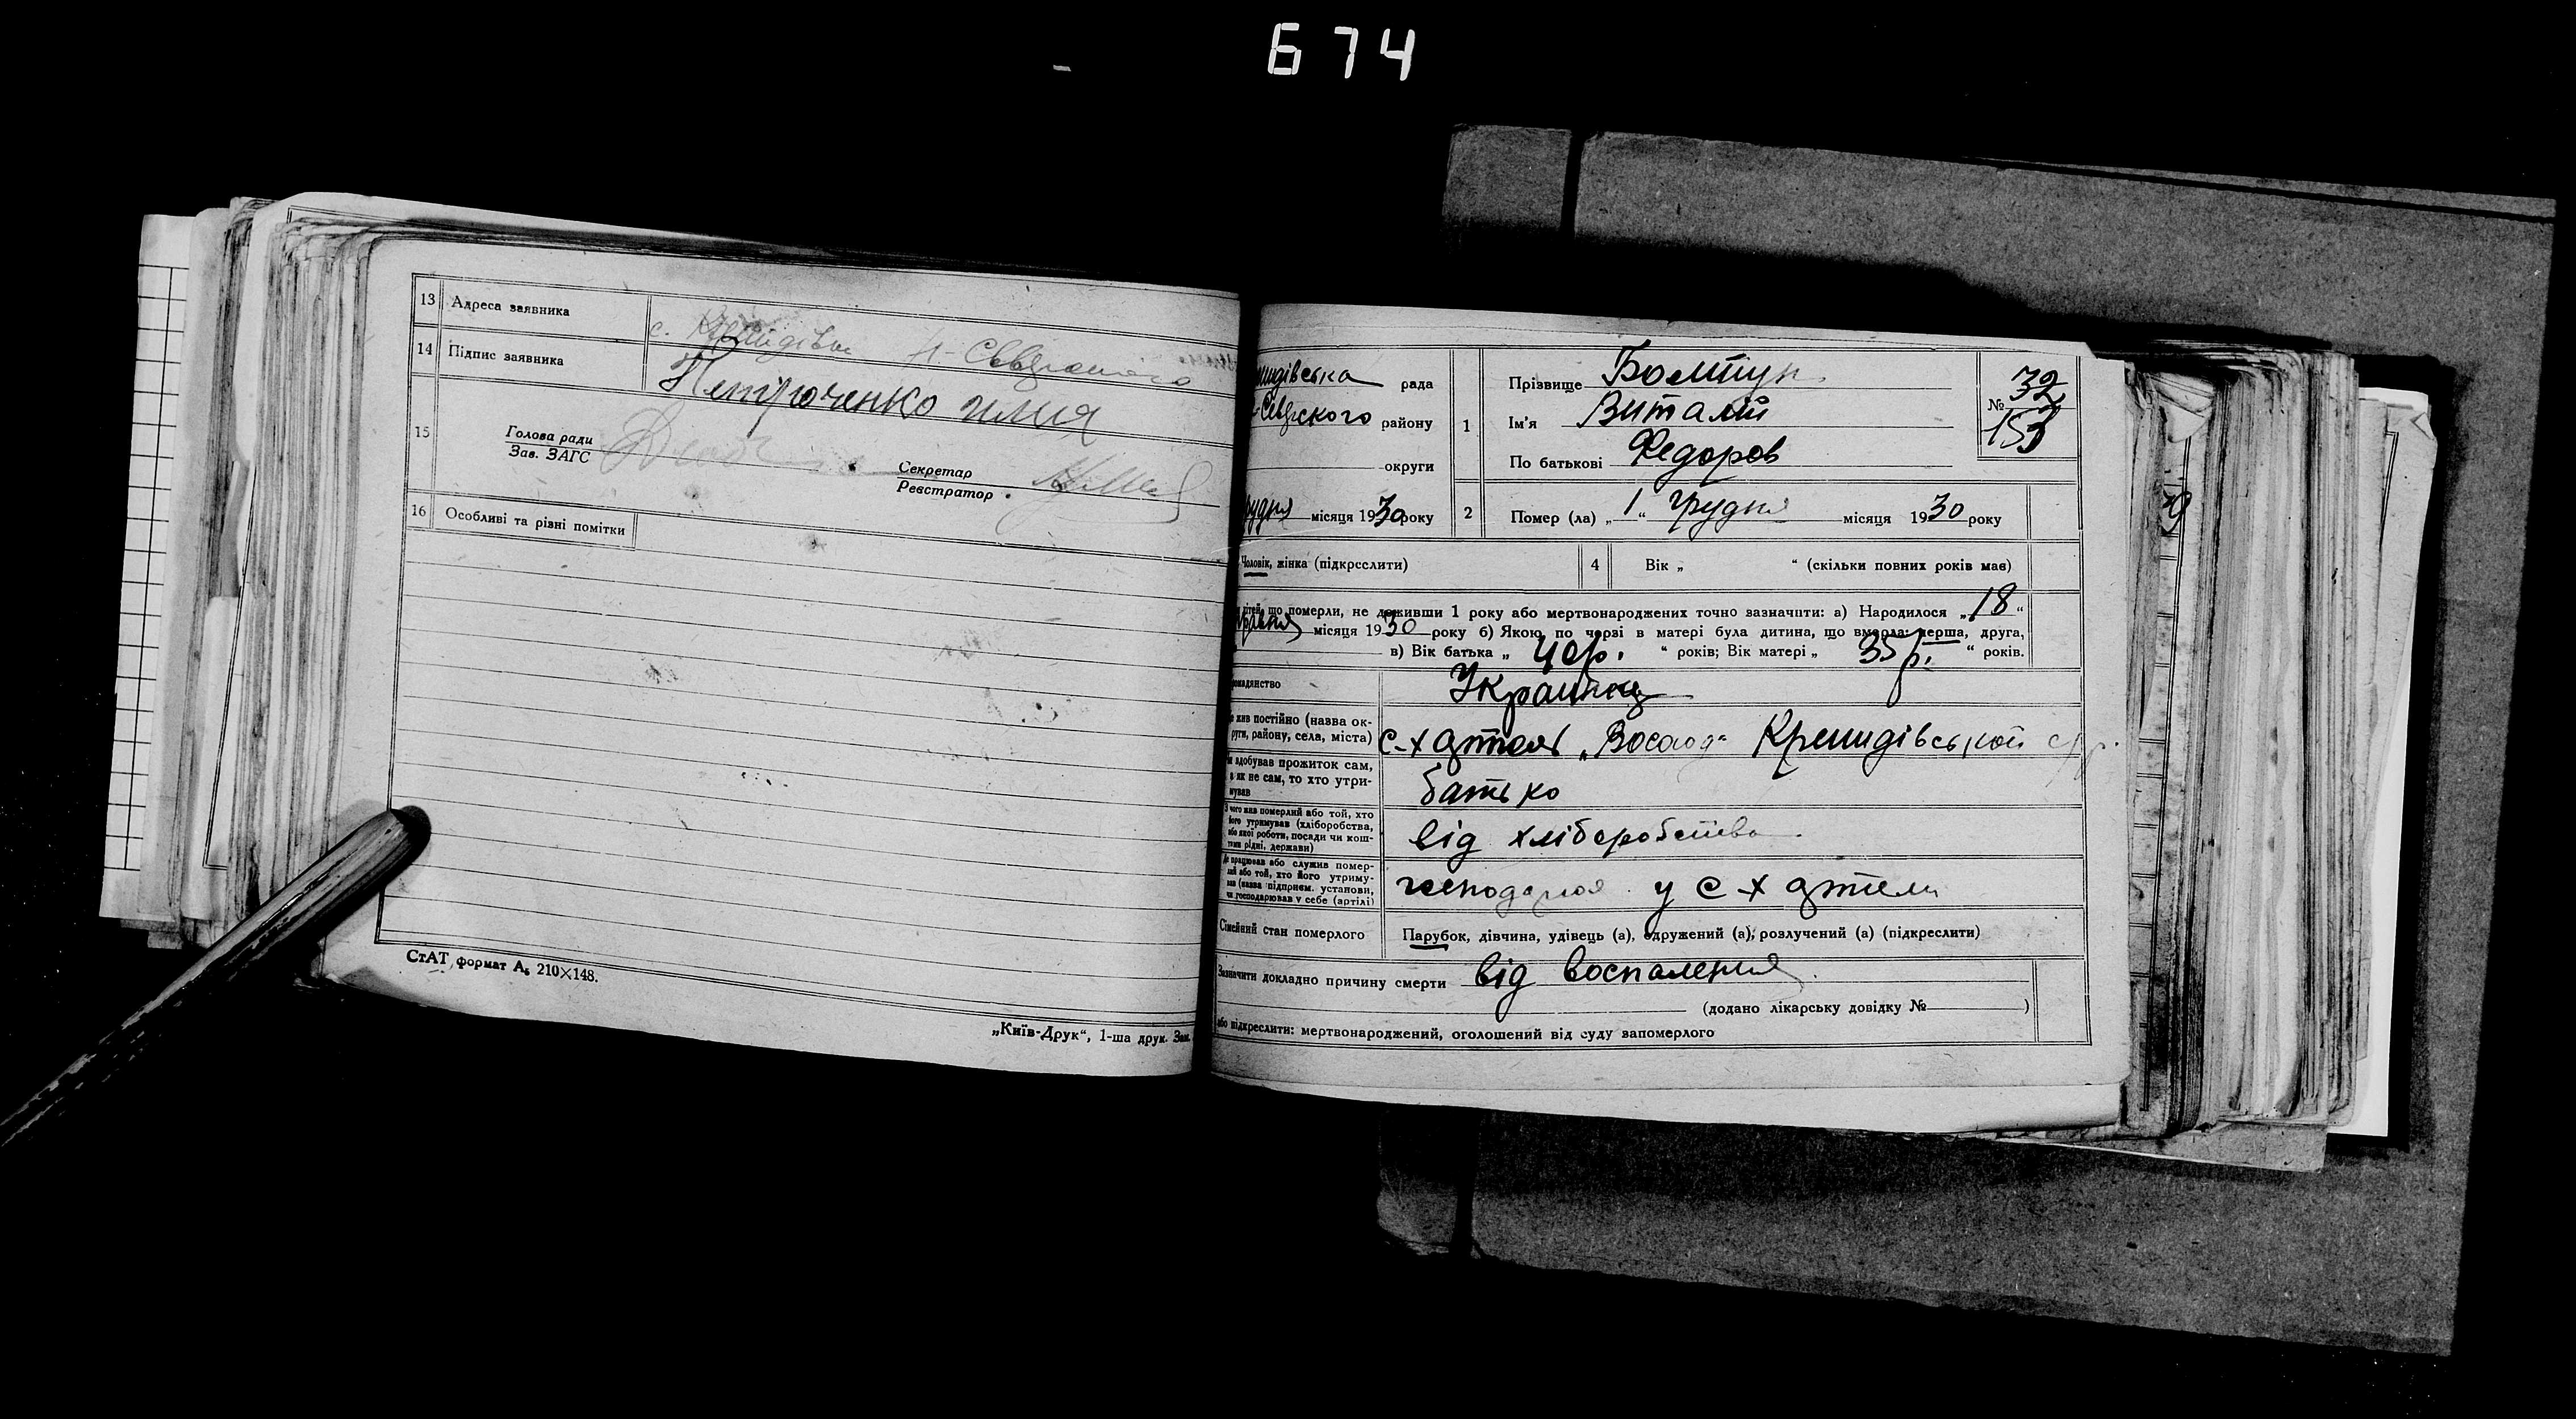 674
13 Адреса заявника с.
14 Підпис заявника Петроченко илия
15 Голова ради
Зав. ЗАГС
Секретар
Реєстратор
16 Особливі та різні помітки
СтАТ формат А₅ 210×148.
„Київ-Друк“, 1-ша друк. Зам.
рада
району
округи
1 Прізвище Болтун
Ім'я Виталий
По батькові Федоров
№ 32
153
рудня місяця 1930 року
2 Помер (ла) „1“ грудня місяця 1930 року
Чоловік, жінка (підкреслити)
4 Вік „ “ (скільки повних років має)
дітей що померли, не доживши 1 року або мертвонароджених точно зазначити: а) Народилося „18“
місяця 1930 року б) Якою по черзі в матері була дитина, що вмерла: перша, друга,
в) Вік батька „40р.“ років; Вік матері „35р.“ років.
омадянство
жив постійно (назва ок-
руги, району, села, міста) с-х артель
и здобував прожиток сам,
а як не сам, то хто утри-
мував батько
З чого жив померлий або той, хто
його утримував (хліборобства,
або якої роботи, посади чи кош-
тами рідні, держави) від хліборобства
Де працював або служив помер-
лий або той, хто його утриму-
вав (назва підприєм. установи,
чи господарював у себе (артілі) у с х артели
Сімейний стан померлого Парубок, дівчина, удівець (а), одружений (а), розлучений (а) (підкреслити)
Зазначити докладно причину смерти від воспаления
(додано лікарську довідку № )
або підкреслити: мертвонароджений, оголошений від суду запомерлого